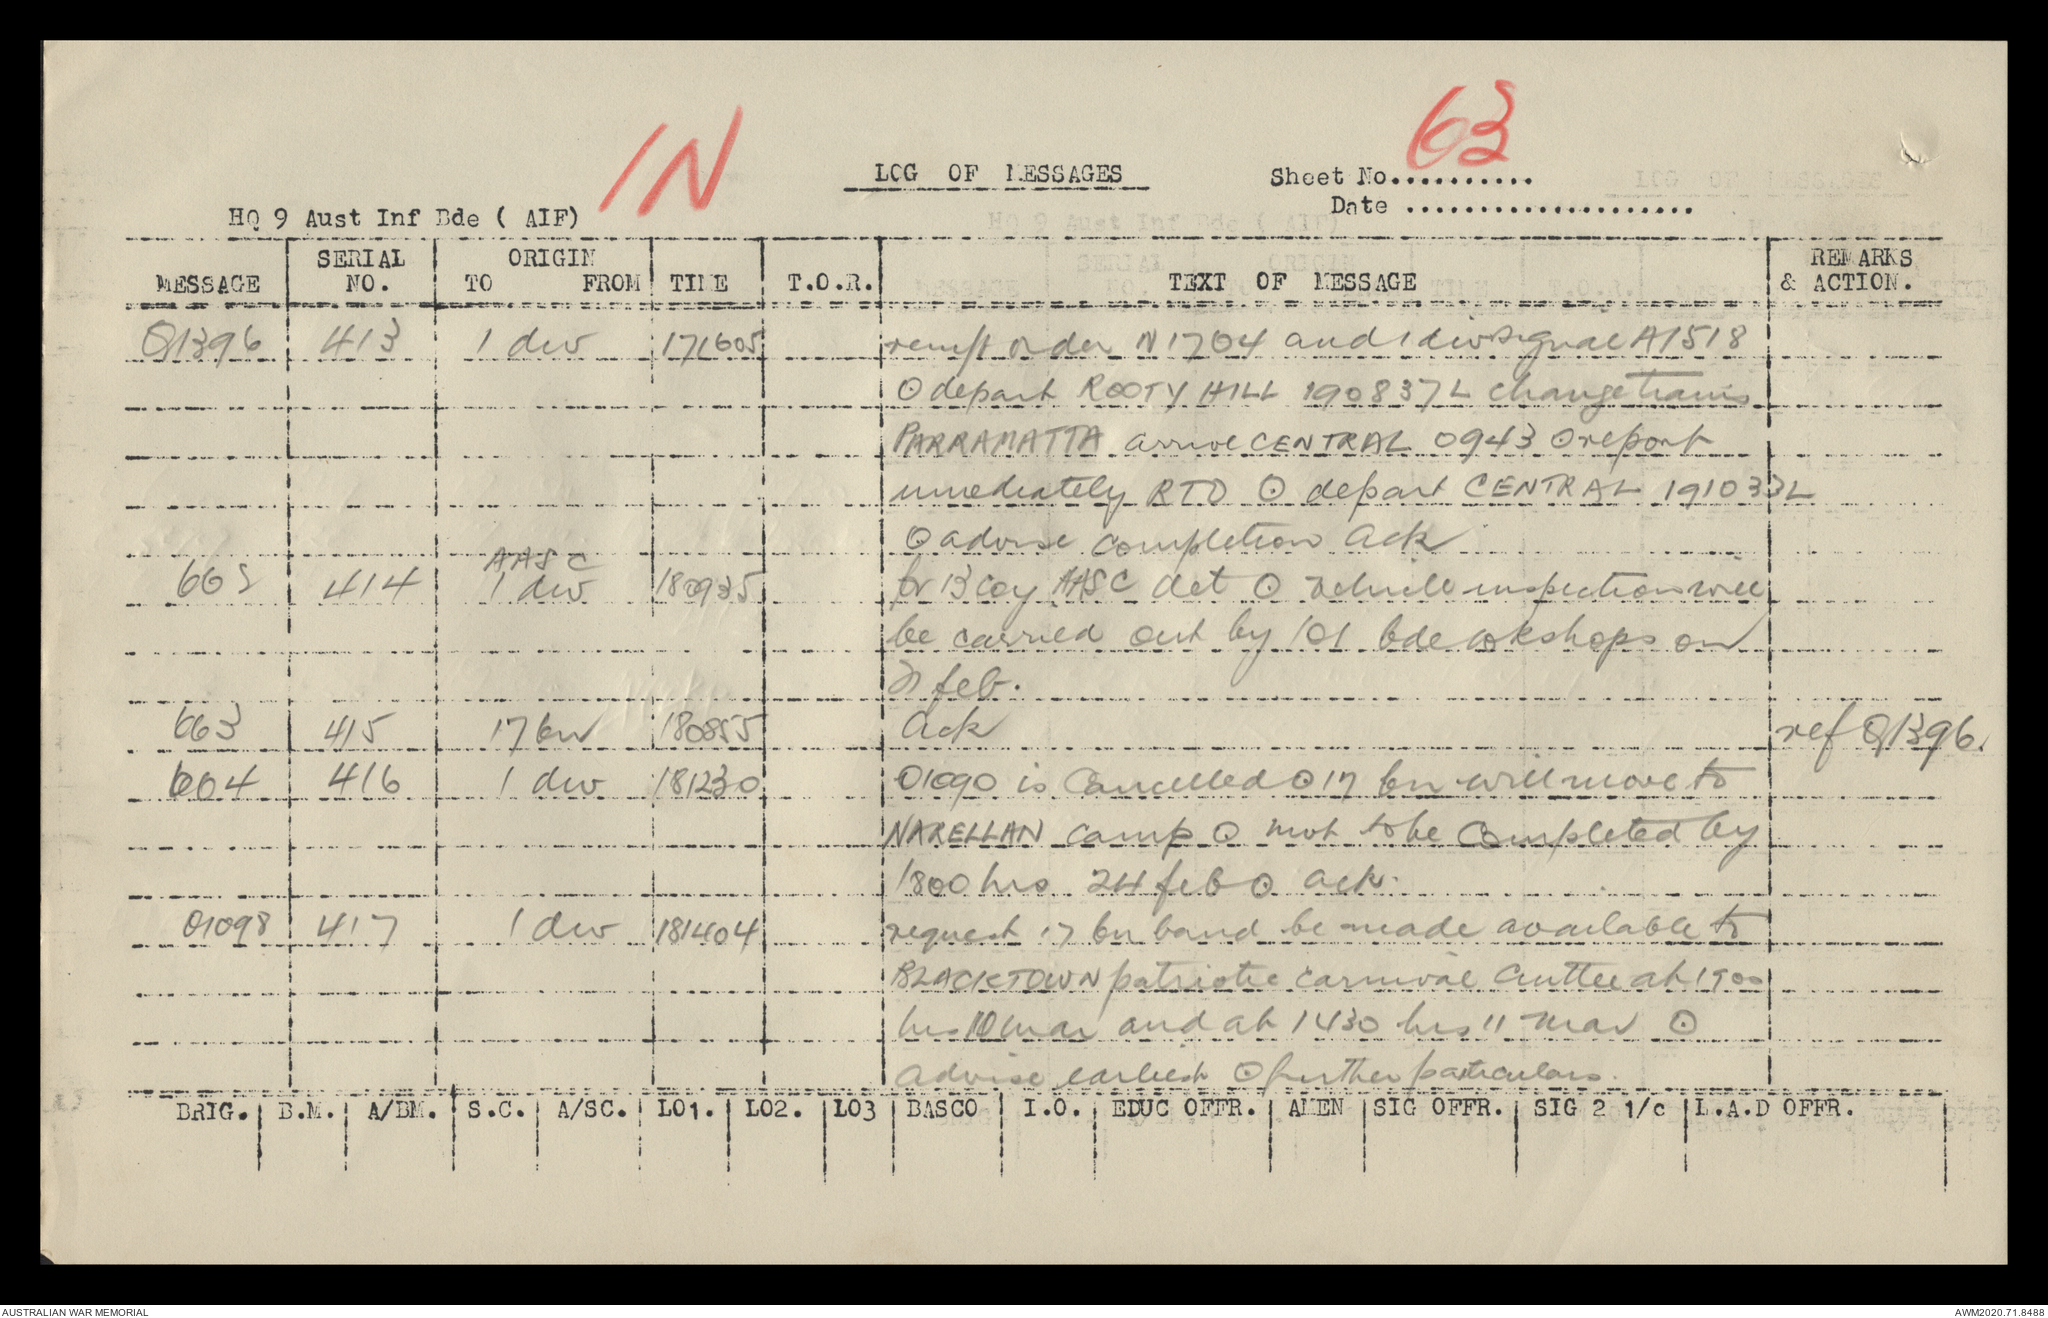 IN
63
LOG OF MESSAGES
Sheet No...........
Date ....................
HQ 9 Aust Inf Bde ( AIF)
MESSAGE | SERIAL NO. | ORIGIN TO FROM | TIME | T.O.R. | TEXT OF MESSAGE | REMARKS & ACTION.
Q1396 413 1 div 171605 order N1704 and 1 div signal A1518
⊙ depart ROOTY HILL 190837L change trains
PARRAMATTA arrive CENTRAL 0943 ⊙ report
immediately RTO ⊙ depart CENTRAL 191033L
⊙ advise completion Ack
414 AASC 1 div 180935 for 13 coy AASC det ⊙ vehicle inspection will
be carried out by 101 bde wkshops on
feb.
663 415 17 bn 180855 Ack ref Q1396.
604 416 1 div 181230 O1090 is Cancelled ⊙ 17 bn will move to
NARELLAN camp ⊙ mov to be Completed by
1800 hrs 24 feb ⊙ ack.
O1098 417 1 div 181404 request 17 bn band be made available to
BLACKTOWN patriotic carnival cmttee at 1900
hrs 10 mar and at 1430 hrs 11 mar ⊙
advise earliest ⊙ further particulars.
BRIG. | B.M. | A/BM. | S.C. | A/SC. | LO1. | LO2. | LO3 | BASCO | I.O. | EDUC OFFR. | AMEN | SIG OFFR. | SIG 2 1/c | L.A.D OFFR.
AUSTRALIAN WAR MEMORIAL
AWM2020.71.8488